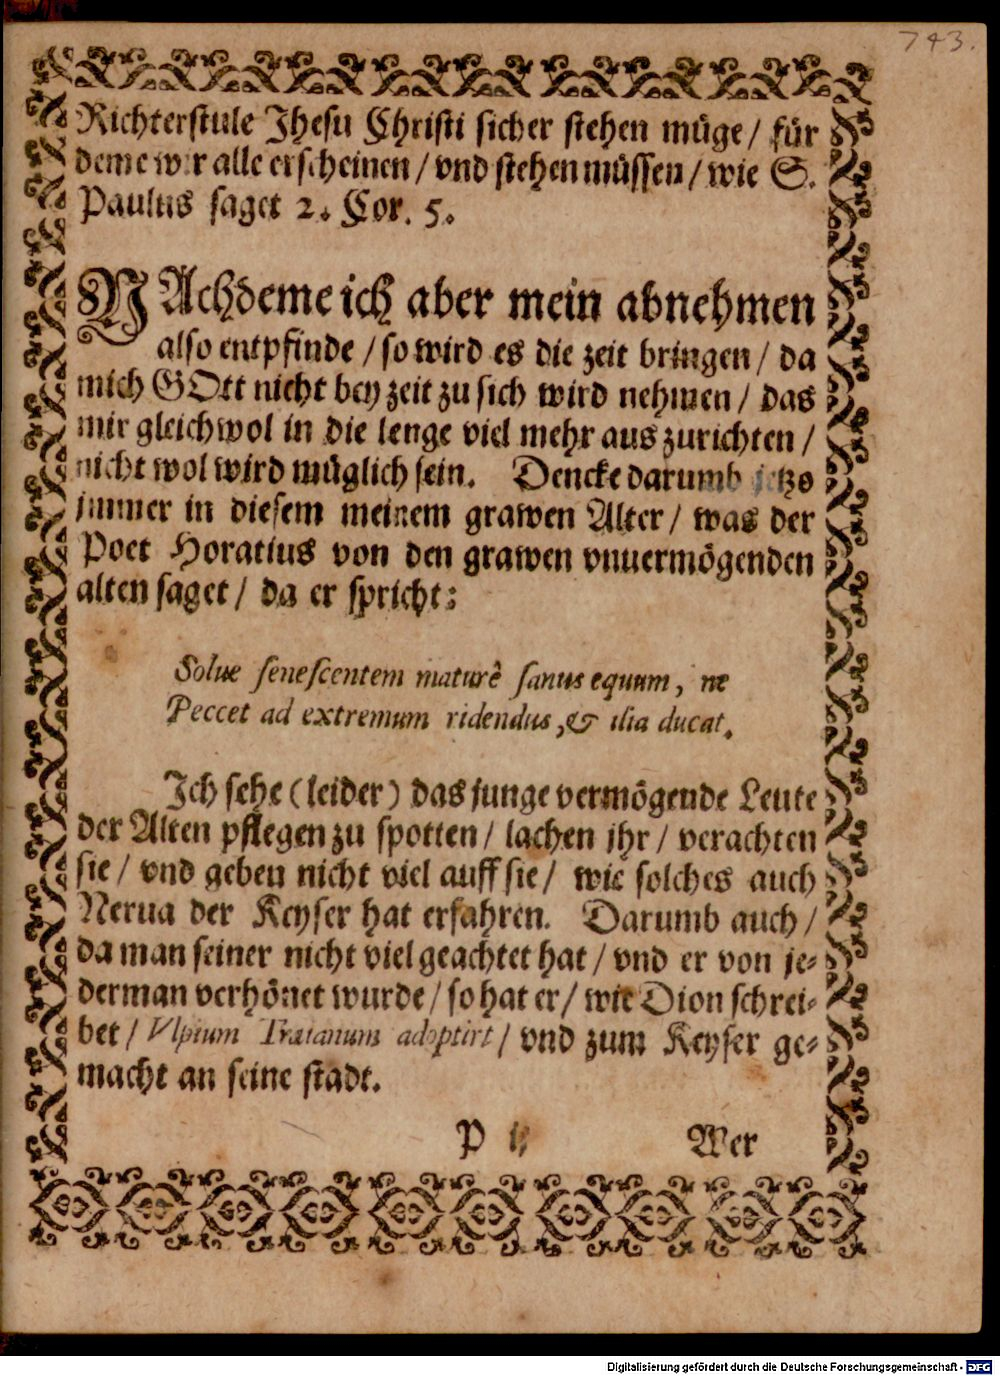 743.
Richterstule Jhesu Christi sicher stehen müge / für
deme wir alle erscheinen / vnd stehen müssen / wie S.
Paulus saget 2. Cor. 5.
NAchdeme ich aber mein abnehmen
also entpfinde / so wird es die zeit bringen / da
mich GOtt nicht bey zeit zu sich wird nehmen / das
mir gleichwol in die lenge viel mehr aus zurichten /
nicht wol wird müglich sein. Dencke darumb jetzo
jmmer in diesem meinem grawen Alter / was der
Poet Horatius von den grawen vnuermögenden
alten saget / da er spricht:
Solue senescentem maturè sanus equum, ne
Peccet ad extremum ridendus, & ilia ducat.
Ich sehe (leider) das junge vermögende Leute
der Alten pflegen zu spotten / lachen jhr / verachten
sie / vnd geben nicht viel auff sie / wie solches auch
Nerua der Keyser hat erfahren. Darumb auch /
da man seiner nicht viel geachtet hat / vnd er von je-
derman verhönet wurde / so hat er / wie Dion schrei-
bet / Vlpium Traianum adoptirt / vnd zum Keyser ge-
macht an seine stadt.
P
Wer
Digitalisierung gefördert durch die Deutsche Forschungsgemeinschaft - DFG